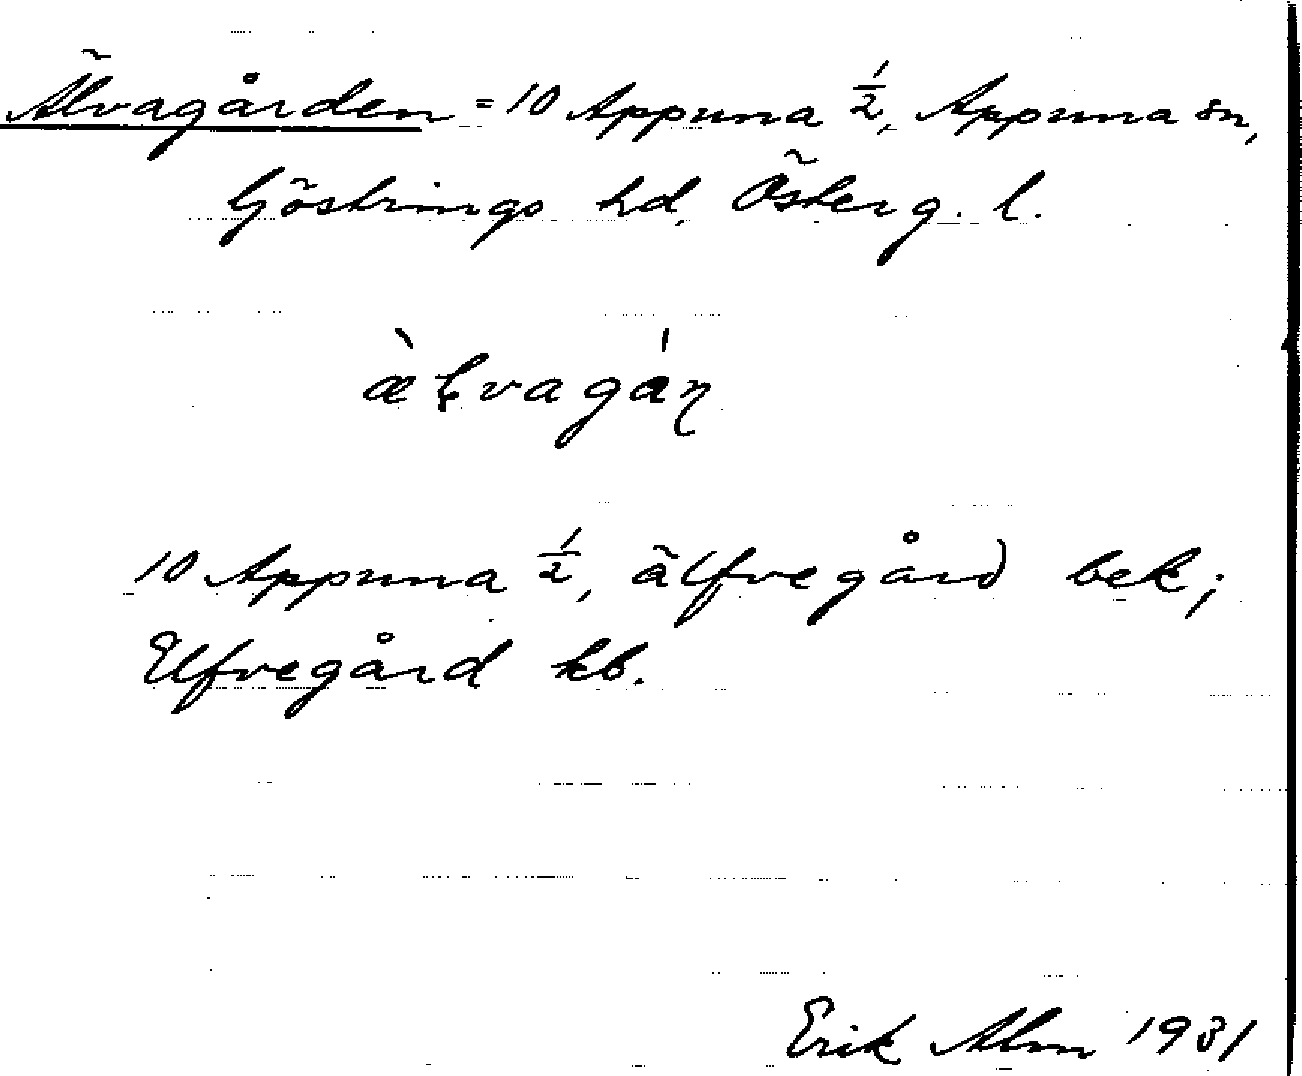 Älvagården = 10 Appuna 1/2, Appuna sn,
Göstrings hd, Österg. l.
10 Appuna 1/2, älfvegård bek;
Elfvegård kb.
Erik Alm 1931